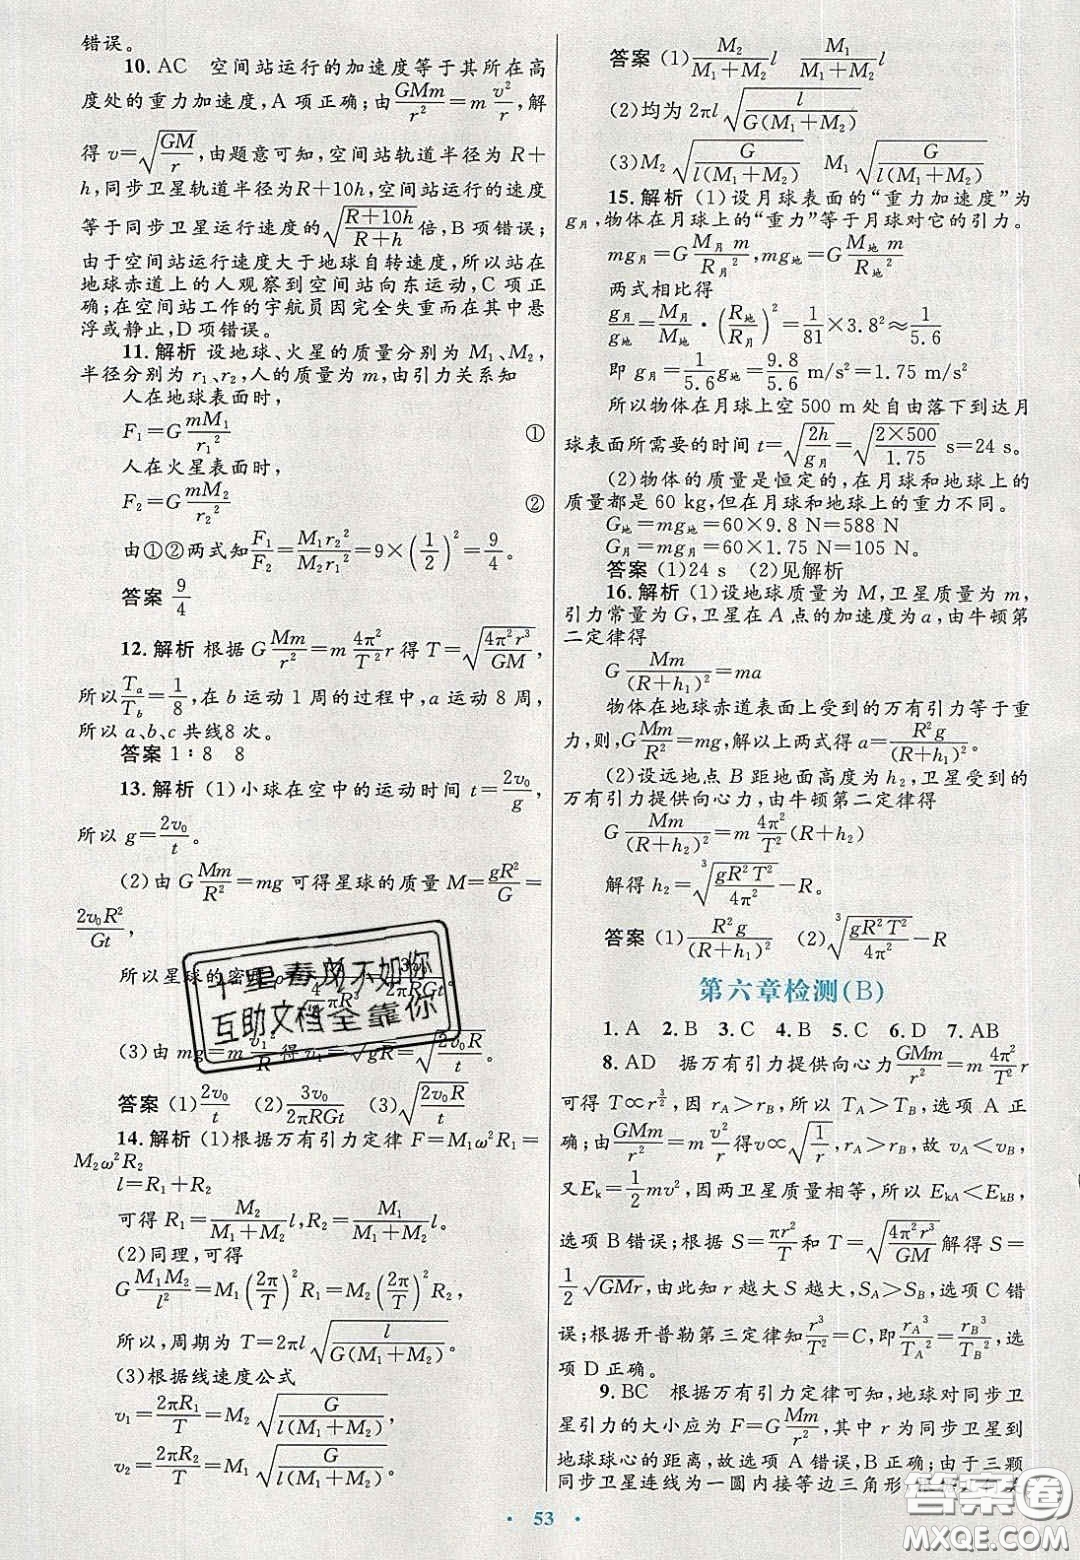 错误。
10. AC 空间站运行的加速度等于其所在高
度处的重力加速度,A 项正确;由GMm/r²=m v²/r,解
得 v=√(GM/r),由题意可知,空间站轨道半径为 R+
h,同步卫星轨道半径为R+10h,空间站运行的速度
等于同步卫星运行速度的√((R+10h)/(R+h))倍,B 项错误;
由于空间站运行速度大于地球自转速度,所以站在
地球赤道上的人观察到空间站向东运动,C 项正
确;在空间站工作的宇航员因完全失重而在其中悬
浮或静止,D 项错误。
11. 解析 设地球、火星的质量分别为 M₁、M₂,
半径分别为 r₁、r₂,人的质量为 m,由引力关系知
人在地球表面时,
F₁=G mM₁/r₁² ①
人在火星表面时,
F₂=G mM₂/r₂² ②
由①②两式知F₁/F₂=M₁r₂²/M₂r₁²=9×(1/2)²=9/4。
答案 9/4
12. 解析 根据 G Mm/r²=m 4π²/T² r 得 T=√(4π²r³/GM),
所以Ta/Tb=1/8,在 b 运动 1 周的过程中,a 运动 8 周,
所以 a、b、c 共线8 次。
答案 1∶8 8
13. 解析 (1)小球在空中的运动时间 t=2v₀/g,
所以 g=2v₀/t。
(2)由 G Mm/R²=mg 可得星球的质量 M=gR²/G=
2v₀R²/Gt,
所以星球的密
(3)由 mg=m v₁²/R 得 v₁=√gR=√(2v₀R/t)
答案 (1)2v₀/t (2)3v₀/2πRGt (3)√(2v₀R/t)
14. 解析 (1)根据万有引力定律 F=M₁ω²R₁=
M₂ω²R₂
l=R₁+R₂
可得 R₁=M₂/(M₁+M₂) l,R₂=M₁/(M₁+M₂) l
(2)同理,可得
G M₁M₂/l²=M₁(2π/T)²R₁=M₂(2π/T)²R₂
所以,周期为 T=2πl√(l/G(M₁+M₂))
(3)根据线速度公式
v₁=2πR₁/T=M₂√(G/l(M₁+M₂)),
v₂=2πR₂/T=M₁√(G/l(M₁+M₂))
答案 (1)M₂/(M₁+M₂) l M₁/(M₁+M₂) l
(2)均为 2πl√(l/G(M₁+M₂))
(3)M₂√(G/l(M₁+M₂)) M₁√(G/l(M₁+M₂))
15. 解析 (1)设月球表面的“重力加速度”为
g月,物体在月球上的“重力”等于月球对它的引力。
mg月=G M月m/R月²,mg地=G M地m/R地²
两式相比得
g月/g地=M月/M地·(R地/R月)²=1/81×3.8²≈1/5.6
即 g月=1/5.6 g地=9.8/5.6 m/s²=1.75 m/s²
所以物体在月球上空 500 m 处自由落下到达月
球表面所需要的时间 t=√(2h/g月)=√(2×500/1.75) s=24 s。
(2)物体的质量是恒定的,在月球和地球上的
质量都是 60 kg,但在月球和地球上的重力不同。
G地=mg地=60×9.8 N=588 N
G月=mg月=60×1.75 N=105 N。
答案 (1)24 s (2)见解析
16. 解析 (1)设地球质量为 M,卫星质量为 m,
引力常量为 G,卫星在 A 点的加速度为 a,由牛顿第
二定律得
G Mm/(R+h₁)²=ma
物体在地球赤道表面上受到的万有引力等于重
力,则,G Mm/R²=mg,解以上两式得 a=R²g/(R+h₁)²。
(2)设远地点 B 距地面高度为 h₂,卫星受到的
万有引力提供向心力,由牛顿第二定律得
G Mm/(R+h₂)²=m 4π²/T²(R+h₂)
解得 h₂=³√(gR²T²/4π²)−R。
答案 (1)R²g/(R+h₁)² (2)³√(gR²T²/4π²)−R
第六章检测(B)
1. A 2. B 3. C 4. B 5. C 6. D 7. AB
8. AD 据万有引力提供向心力GMm/r²=m 4π²/T² r
可得 T∝r^(3/2),因 rA>rB,所以 TA>TB,选项 A 正
确;由GMm/r²=m v²/r得v∝√(1/r),rA>rB,故 vA<vB,
又Ek=1/2 mv²,因两卫星质量相等,所以 EkA<EkB,
选项 B 错误;根据 S=πr²/T 和 T=√(4π²r³/GM)解得 S=
1/2√GMr,由此可知 r 越大 S 越大,SA>SB,选项 C 错
误;根据开普勒第三定律知r³/T²=C,即rA³/TA²=rB³/TB²,选
项 D 正确。
9. BC 根据万有引力定律可知,地球对同步卫
星引力的大小应为 F=G Mm/r²,其中 r 为同步卫星到
地球球心的距离,故选项 A 错误,B 正确;由于三颗
同步卫星连线为一圆内接等边三角形
· 53 ·
十里春风不如你
互助文档全靠你
答案圈
MXQE.COM